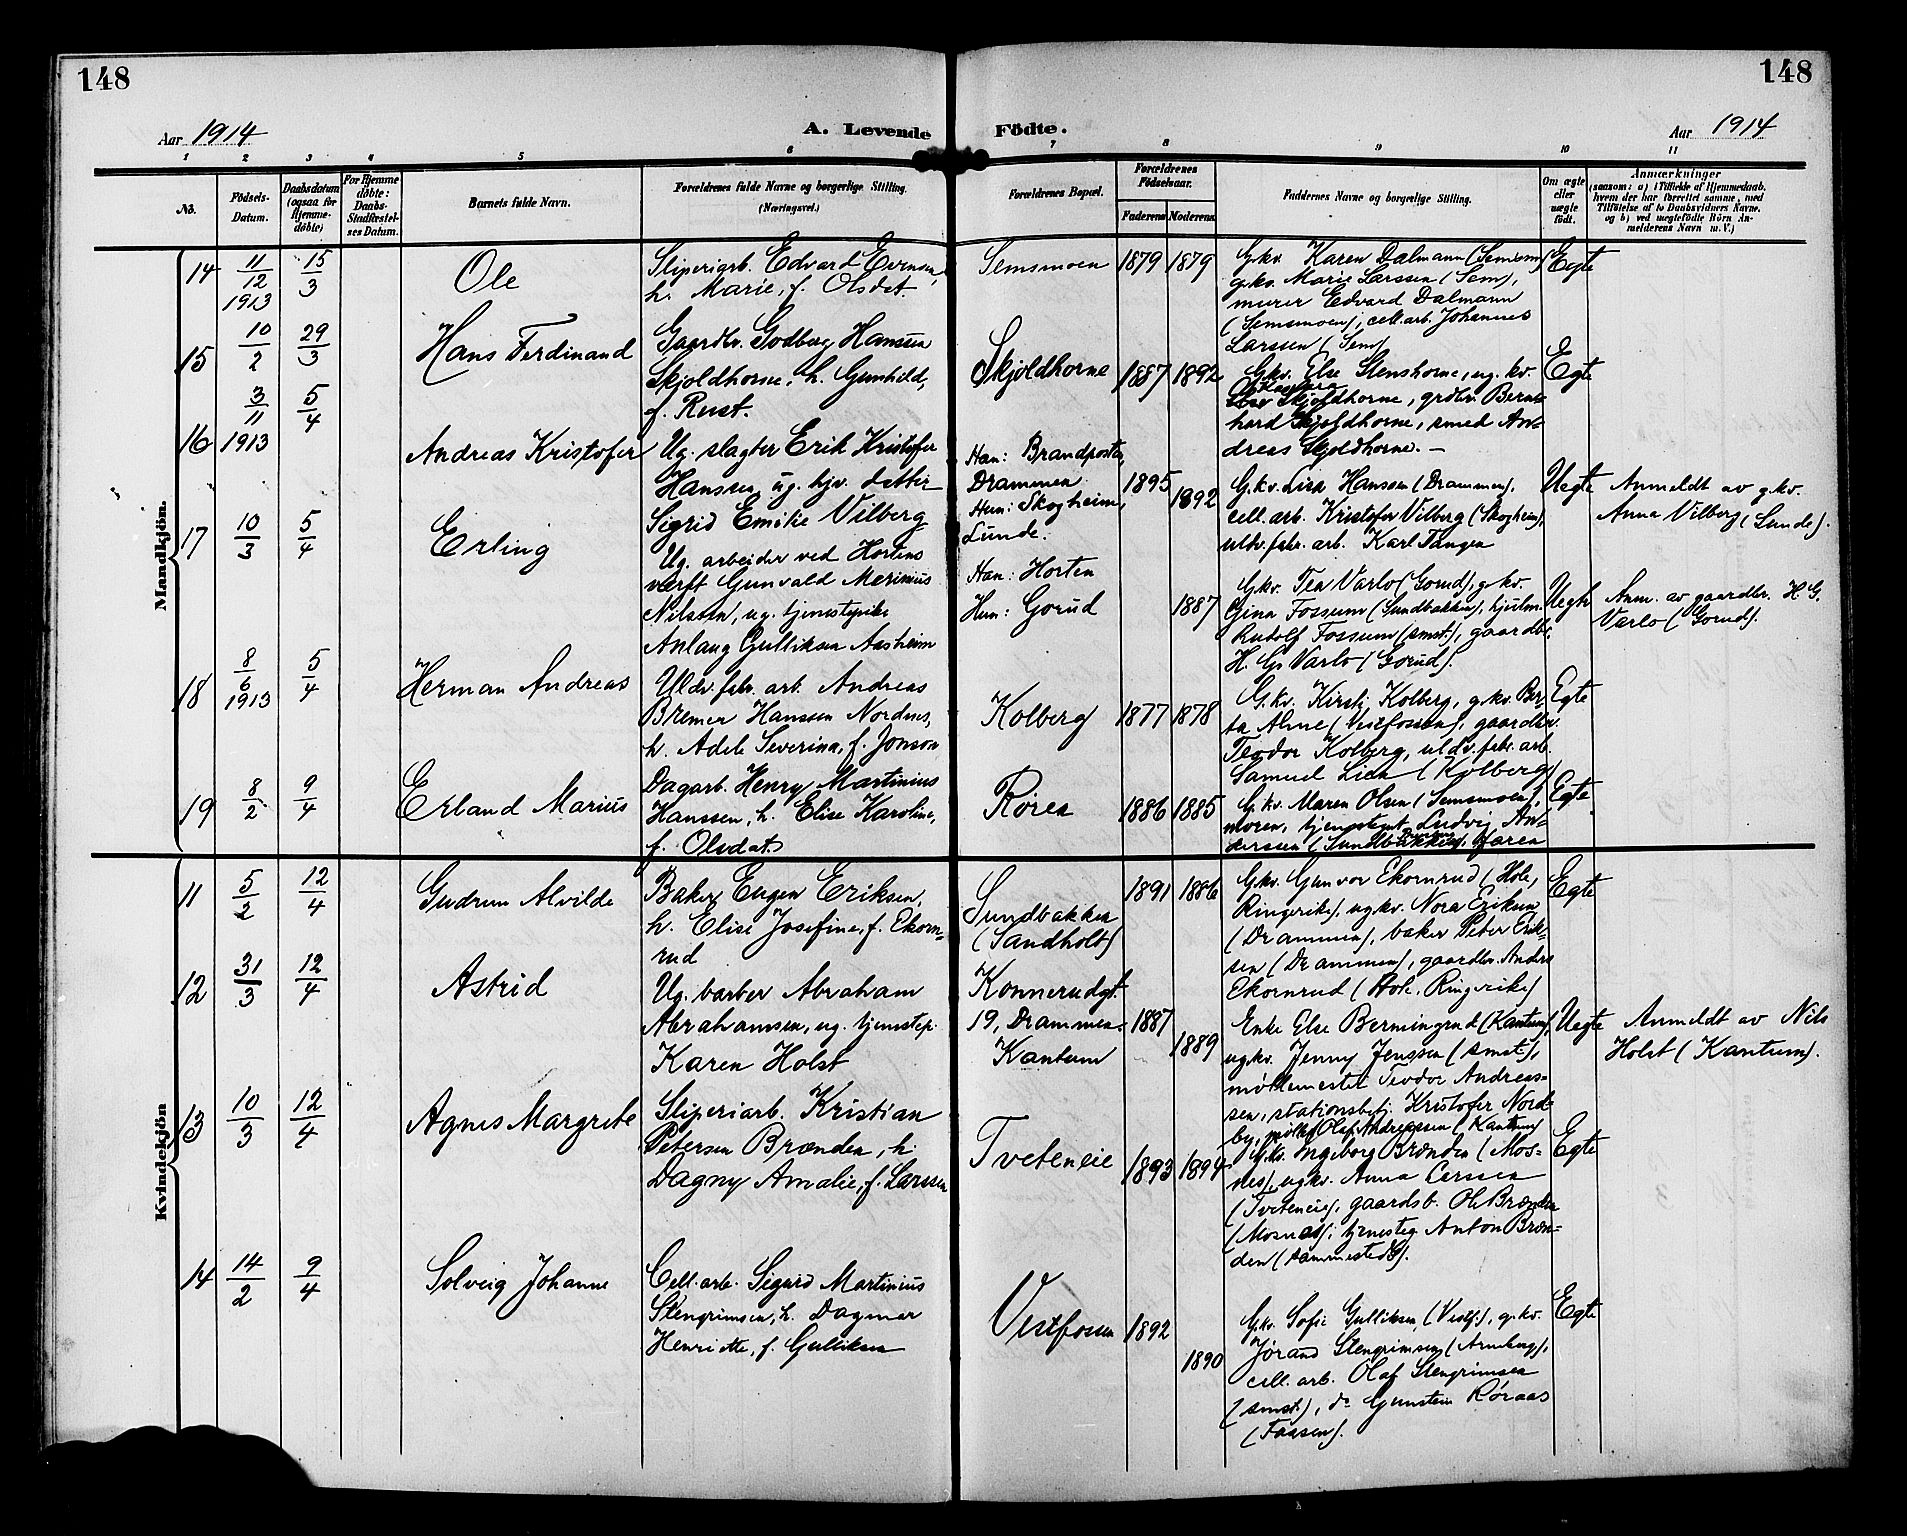 148
148
Aar 1914
A. Levende Födte.
Aar 1914
1 2 3 4 5 6 7 8 9 10 11
No.
Födsels-
Datum.
Daabsdatum
(ogsaa for
Hjemme-
döbte)
For Hjemme
döbte:
Daabs-
Stadfæstel-
ses Datum.
Barnets fulde Navn.
Forældrenes fulde Navne og borgerlige Stilling.
(Næringsvei.)
Forældrenes Bopæl.
Forældrenes
Födselsaar.
Faderens Moderens
Faddernes Navne og borgerlige Stilling.
Om ægte
eller
uægte
födt.
Anmærkninger
(saasom: a) i Tilfælde af Hjemmedaab,
hvem der har forrettet samme, med
Tilföielse af to Daabsvidners Navne,
og b) ved uægtefödte Börn An-
melderens Navn m. V.)
Mandkjön.
14
11/12 1913
15/3
Ole
Sliperiarb. Edvard Evensen,
h. Marie, f. Olsdat.
Semsmoen
1879 1879
Gkv. Karen Dalmann (Semsm)
gkv. Marie Larssen (Sem),
murer Edvard Dalmann
(Semsmoen), cell.arb. Johannes
Larssen (Sem)
Egte
15
10/2
29/3
Hans Ferdinand
Gaardbr. Godberg Hanssen
Skjoldhorne, h. Gunhild,
f. Rust.
Skjoldhorne
1887 1892
Gkv. Else Stenshorne, ug. kv.
Skjoldhorne, grdbr. Bern-
hard Skjoldhorne, smed An-
dreas Skjoldhorne. —
Egte
16
3/11 1913
5/4
Andreas Kristofer
Ug. slagter Erik Kristofer
Hanssen, ug. hjv. datter
Sigrid Emilie Vilberg
Han: Brandposten,
Drammen
Hun: Skogheim,
Lunde.
1895 1892
Gkv. Lisa Hanssen (Drammen),
cell.arb. Kristofer Vilberg (Skogheim),
uldv.fabr. arb. Karl Tangen
Uegte
Anmeldt av gkv.
Anna Vilberg (Lunde).
17
10/3
5/4
Erling
Ug. arbeider ved Hortens
verft Gunvald Marinius
Nilsen, ug. tjenestepike
Anlaug Gulliksen Aasheim
Han: Horten
Hun: Gorud
1887
Gkv. Tea Varlo (Gorud), gkv.
Gina Fossum (Sundbakken), hjulm.
Rudolf Fossum (smst.), gaardbr.
H. G. Varlo (Gorud).
Uegte
Anm. av gaardbr. H. G.
Varlo (Gorud).
18
8/6 1913
5/4
Herman Andreas
Uldv. fabr. arb. Andreas
Bremer Hanssen Nordnes,
h. Adele Severina, f. Jonson
Kolberg
1877 1878
Gkv. Kirsti Kolberg, gkv. Ber-
ta Alme (Vestfossen), gaardbr.
Teodor Kolberg, uldv.fabr. arb.
Samuel Lien (Kolberg)
Egte
19
8/2
9/4
Erland Marius
Dagarb. Henry Martinius
Hanssen, h. Elise Karoline,
f. Olsdat.
Røren
1886 1885
Gkv. Maren Olsen (Semsmoen),
moren, tjenestegt. Ludvig An-
derssen (Sundbakken), faren
Egte
Kvindekjön
11
5/2
12/4
Gudrun Alvilde
Baker Eugen Eriksen,
h. Elise Josefine, f. Ekorn-
rud
Sundbakken
(Sandholt)
1891 1886
Gkv. Gunvor Ekornrud (Hole,
Ringerike), ugkv. Nora Eriksen
(Drammen), baker Peter Erik-
sen (Drammen), gaardbr. Anders
Ekornrud (Hole, Ringerike)
Egte
12
31/3
12/4
Astrid
Ug. barber Abraham
Abrahamsen, ug. tjenstep.
Karen Holst
Konnerudgt.
19, Drammen.
Kantum
1887 1889
Enke Else Bermingrud (Kantum),
ugkv. Jenny Jenssen (smst.),
møllemester Teodor Andreas-
sen, stationsbetj. Kristofer Nord-
by, Olaf Andreassen (Kantum)
Uegte
Anmeldt av Nils
Holst (Kantum).
13
10/3
12/4
Agnes Margrete
Sliperiarb. Kristian
Petersen Brænden, h.
Dagny Amalie, f. Larssen
Tveteneie
1893 1894
Gkv. Ingeborg Brænden (Mos-
nes), ugkv. Anna Larssen
(Tveteneie), gaardsb. Ole Brænden
(Mosnes), tjenesteg. Anton Bræn-
den (sammesteds).
Egte
14
14/2
9/4
Solveig Johanne
Cell.arb. Sigurd Martinius
Stengrimsen, h. Dagmar
Henriette, f. Gulliksen
Vestfossen
1892 1890
Gkv. Sofie Gulliksen, (Vestf.), gkv.
Jørand Stengrimsen (Arneberg),
cell. arb. Olaf Stengrimsen
(smst.), do Gunstein Røraas
(Fossen).
Egte